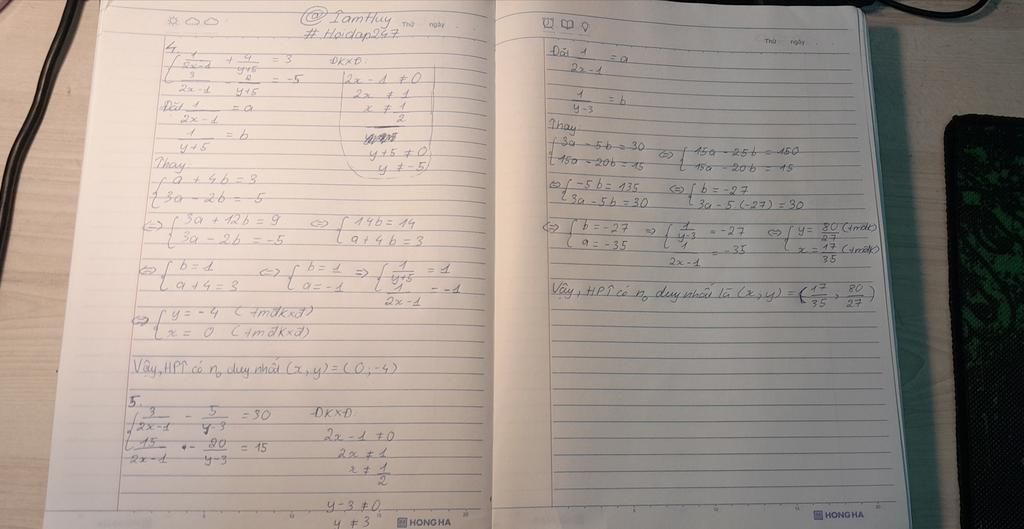 @IamHuy
#Hoidap247
Thứ ngày
4.
{ 1/(2x-1) + 4/(y+5) = 3
3/(2x-1) - 2/(y+5) = -5
ĐKXĐ:
2x - 1 ≠ 0
2x ≠ 1
x ≠ 1/2
y+5 ≠ 0
y ≠ -5
Đặt 1/(2x-1) = a
1/(y+5) = b
Thay:
{ a + 4b = 3
3a - 2b = -5
⇔ { 3a + 12b = 9
3a - 2b = -5
⇔ { 14b = 14
a + 4b = 3
⇔ { b = 1
a + 4 = 3
⇔ { b = 1
a = -1
⇒ { 1/(y+5) = 1
1/(2x-1) = -1
⇔ { y = -4 (tmđkxđ)
x = 0 (tmđkxđ)
Vậy, HPT có n₀ duy nhất (x, y) = (0; -4)
5.
{ 3/(2x-1) - 5/(y-3) = 30
15/(2x-1) - 20/(y-3) = 15
ĐKXĐ:
2x - 1 ≠ 0
2x ≠ 1
x ≠ 1/2
y-3 ≠ 0
y ≠ 3
HONG HA
Thứ ngày
Đặt 1/(2x-1) = a
1/(y-3) = b
Thay:
{ 3a - 5b = 30
15a - 20b = 15
⇔ { 15a - 25b = 150
15a - 20b = 15
⇔ { -5b = 135
3a - 5b = 30
⇔ { b = -27
3a - 5(-27) = 30
⇔ { b = -27
a = -35
⇒ { 1/(y-3) = -27
1/(2x-1) = -35
⇔ { y = 80/27 (tmđk)
x = 17/35 (tmđk)
Vậy, HPT có n₀ duy nhất là (x, y) = (17/35, 80/27)
HONG HA